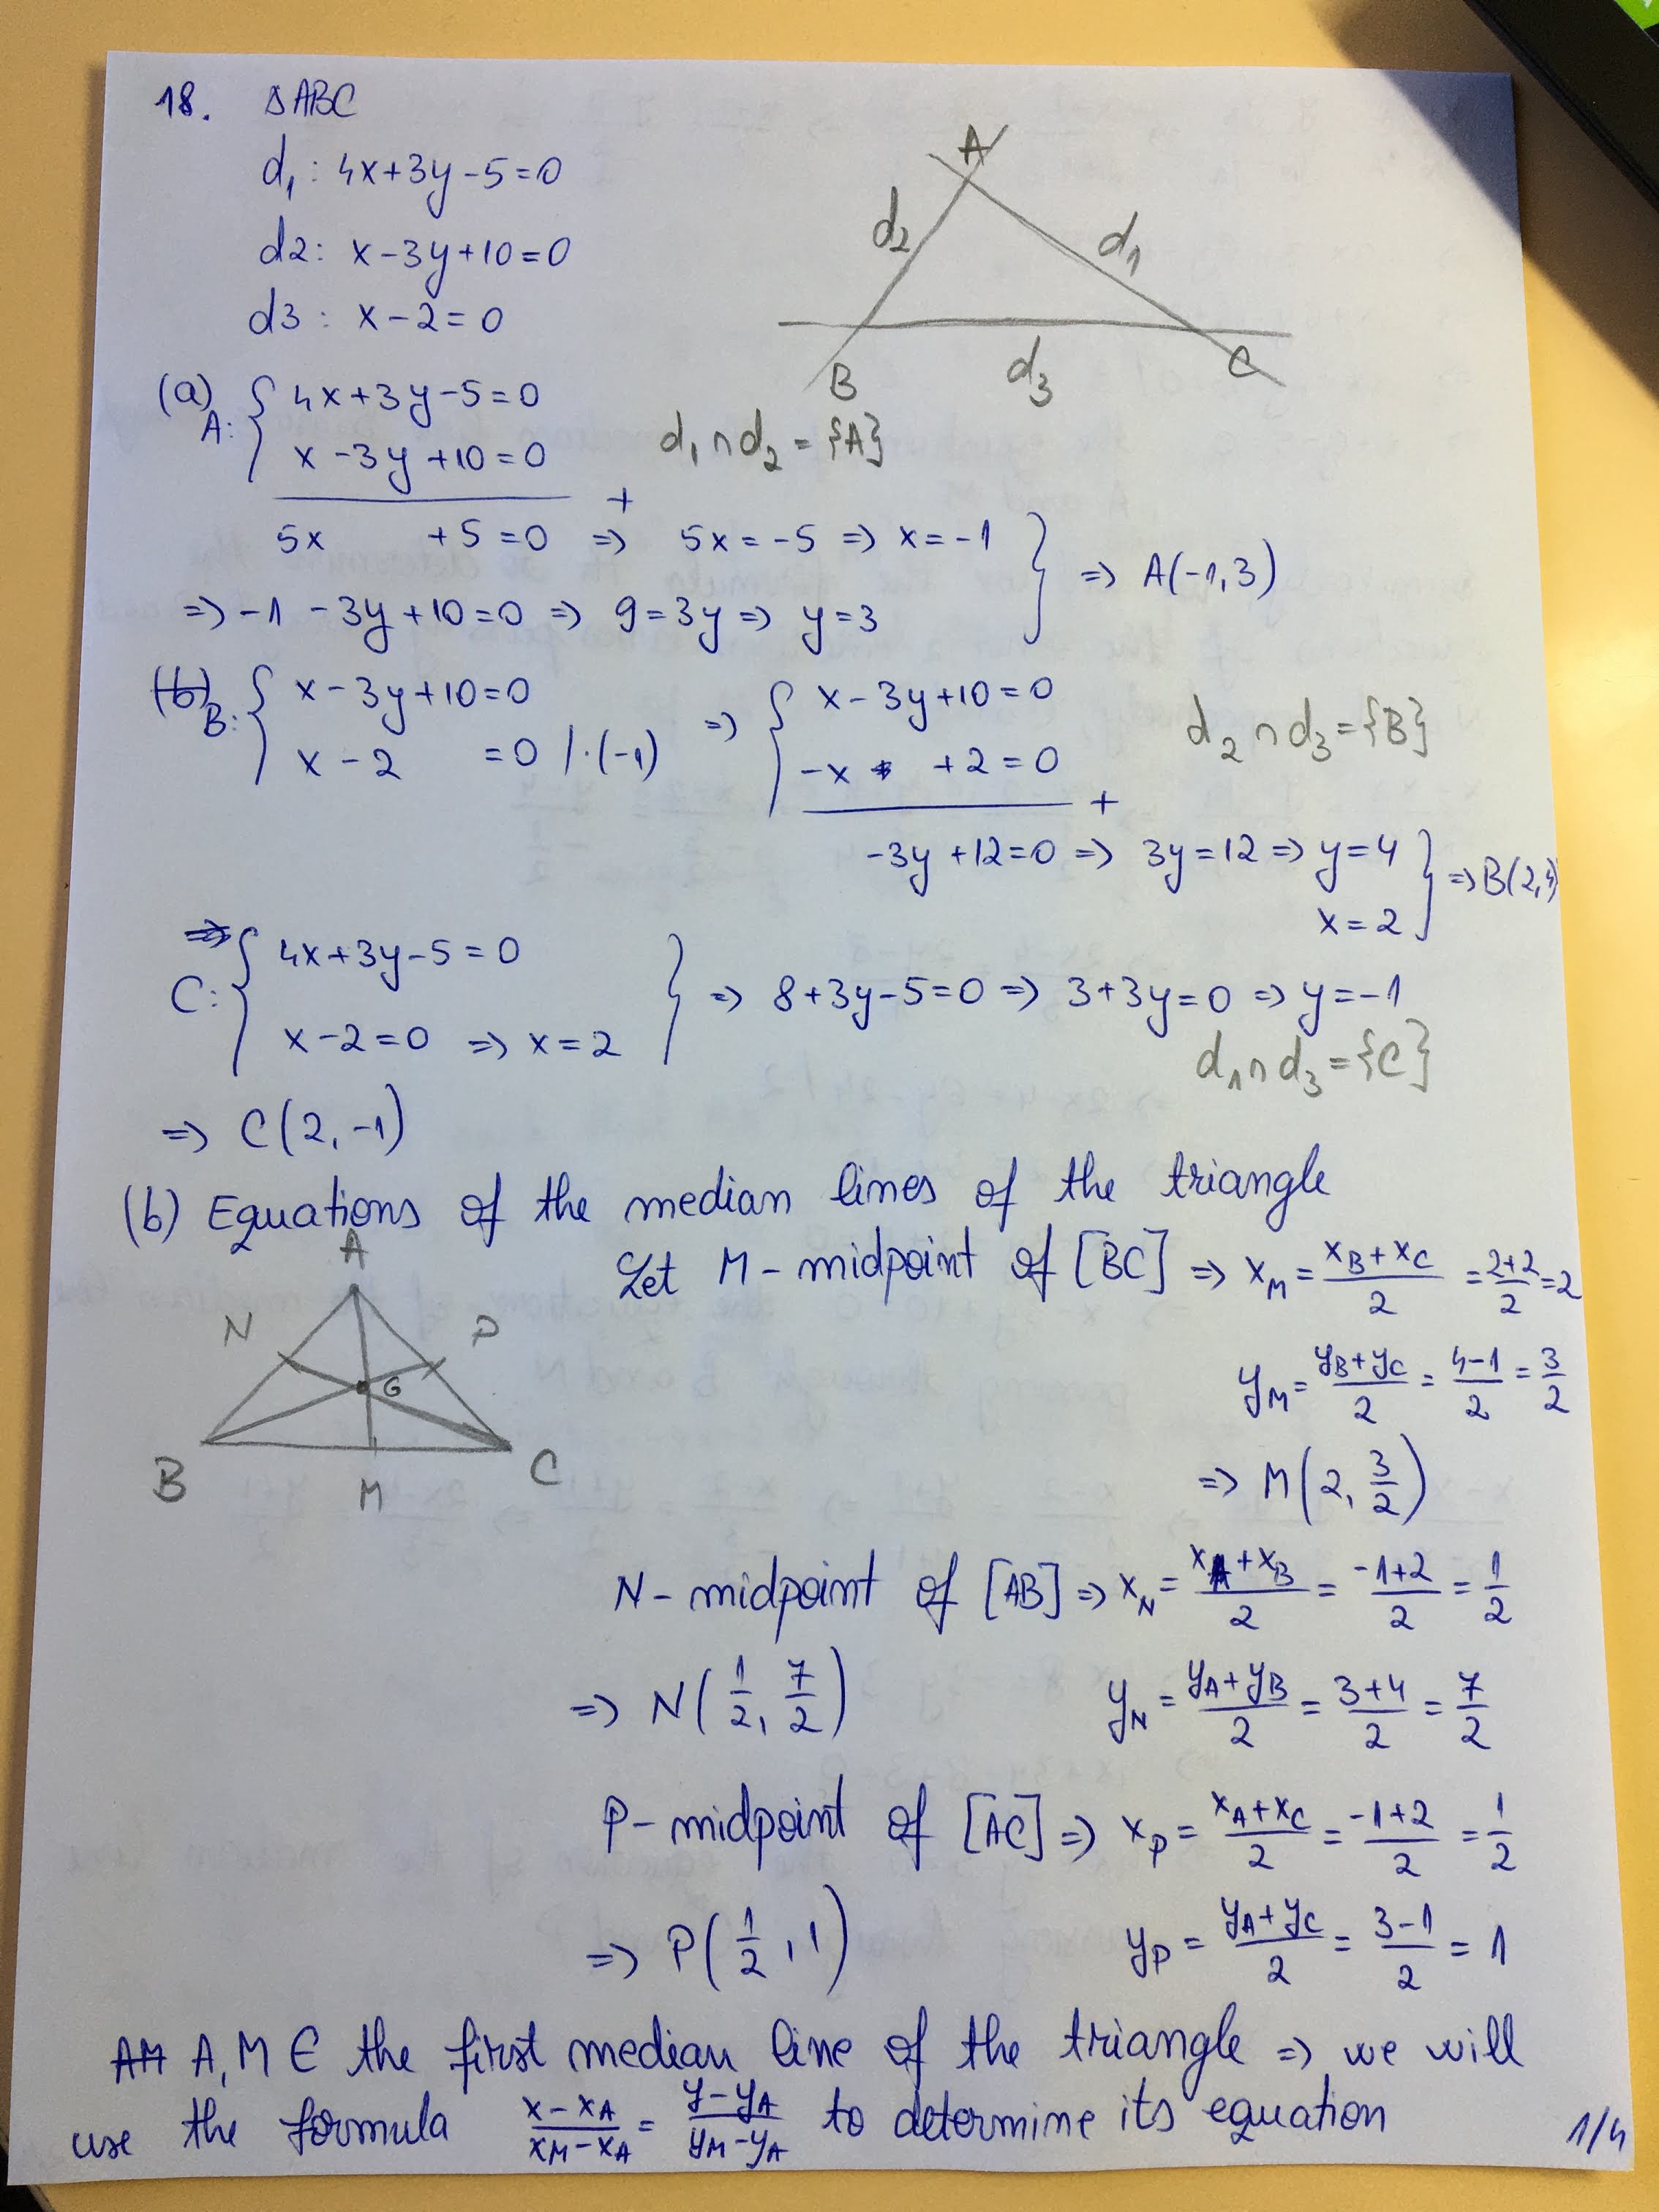 18. △ABC
d₁: 4x+3y-5=0
d2: x-3y+10=0
d3: x-2=0
A
d2
d₁
B
d₃
C
(a) A: { 4x+3y-5=0
x-3y+10=0
d₁∩d₂={A}
+
5x +5=0 => 5x=-5 => x=-1
=> -1-3y+10=0 => 9=3y => y=3 } => A(-1,3)
(b) B: { x-3y+10=0
x-2 =0 /·(-1)
=> { x-3y+10=0
-x +2=0
d₂∩d₃={B}
+
-3y+12=0 => 3y=12 => y=4
x=2 } => B(2,4)
=> C: { 4x+3y-5=0
x-2=0 => x=2 } => 8+3y-5=0 => 3+3y=0 => y=-1
d₁∩d₃={C}
=> C(2,-1)
(b) Equations of the median lines of the triangle
A
N
P
G
B
M
C
Let M-midpoint of [BC] => x_M = (x_B+x_C)/2 = (2+2)/2 = 2
y_M = (y_B+y_C)/2 = (4-1)/2 = 3/2
=> M(2, 3/2)
N-midpoint of [AB] => x_N = (x_A+x_B)/2 = (-1+2)/2 = 1/2
=> N(1/2, 7/2)
y_N = (y_A+y_B)/2 = (3+4)/2 = 7/2
P-midpoint of [AC] => x_P = (x_A+x_C)/2 = (-1+2)/2 = 1/2
=> P(1/2, 1)
y_P = (y_A+y_C)/2 = (3-1)/2 = 1
AM A, M ∈ the first median line of the triangle => we will
use the formula (x-x_A)/(x_M-x_A) = (y-y_A)/(y_M-y_A) to determine its equation
1/4